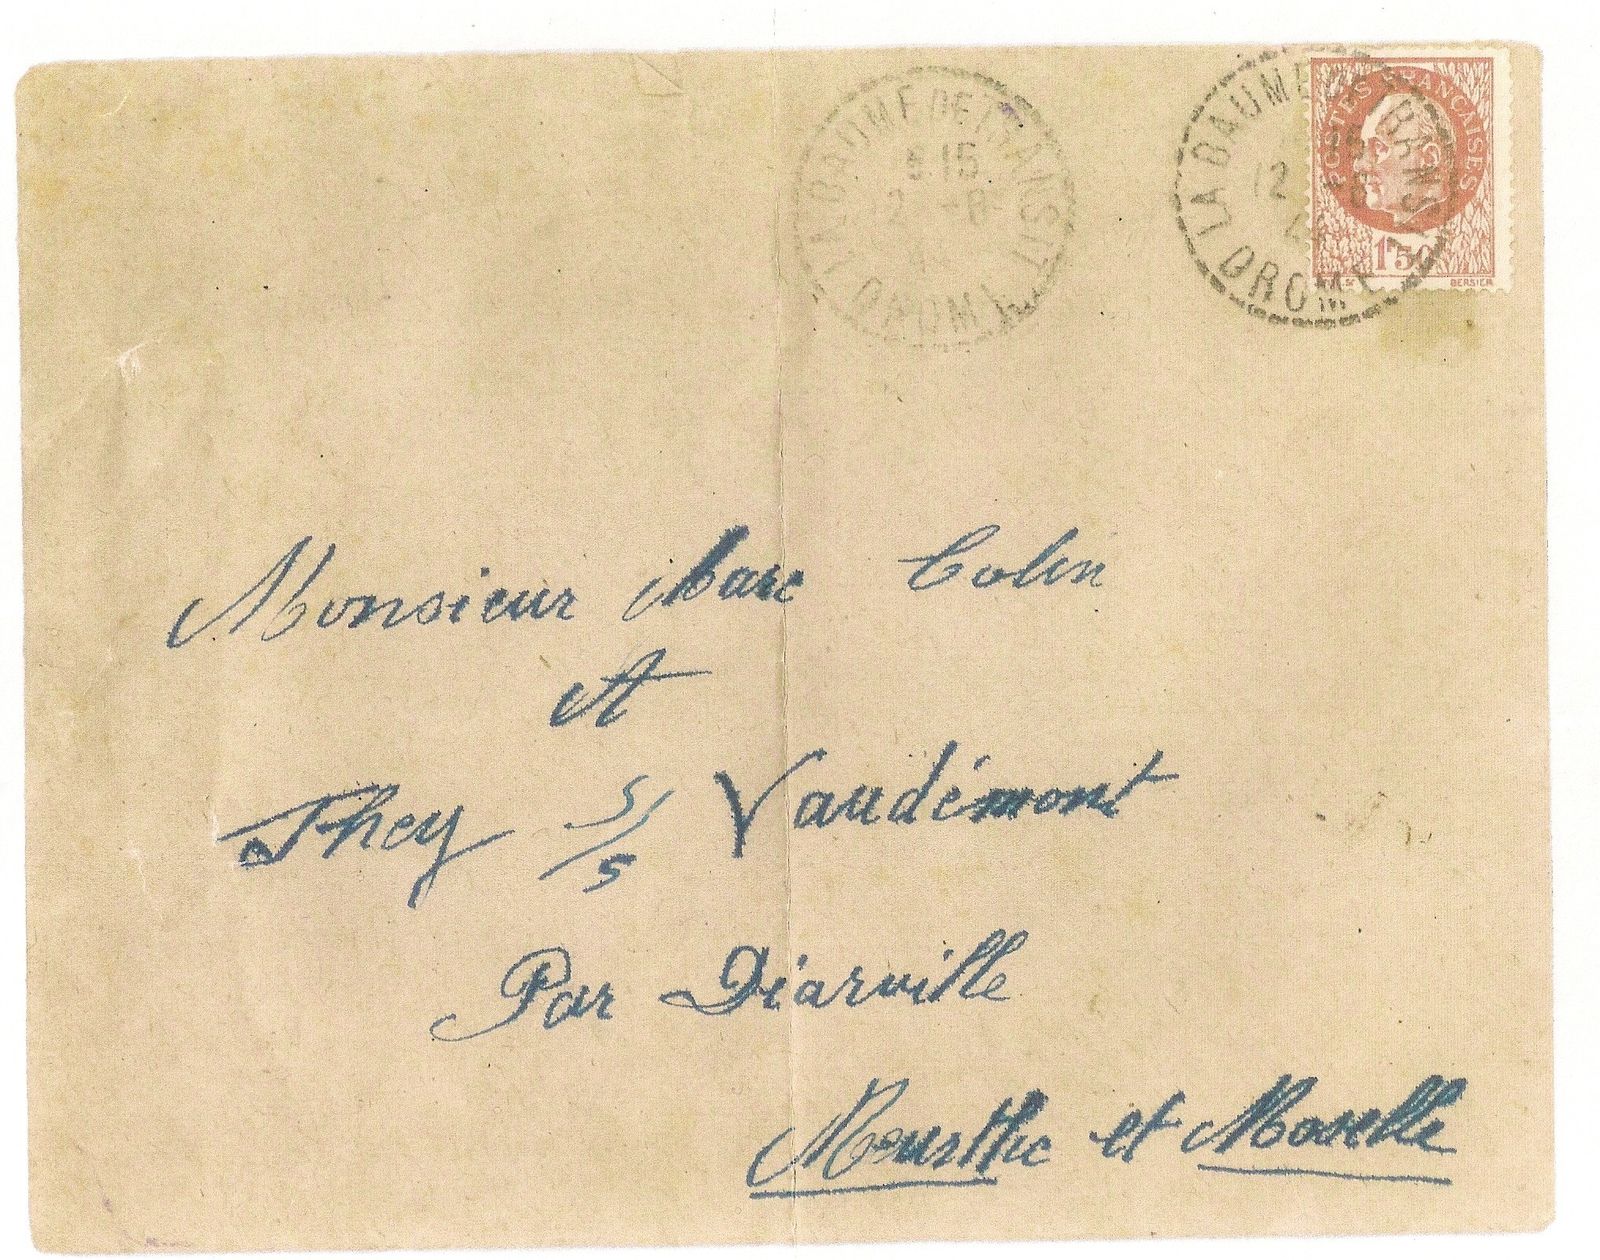 LA BAUME DE TRANSIT
15
2 -6
DROME
LA BAUME DE TRANSIT
15
12 -6
44
DROME
POSTES FRANÇAISES
1F50
BERSIER
Monsieur Marc Colin
At
They s/s Vaudémont
Par Diarville
Meurthe et Moselle